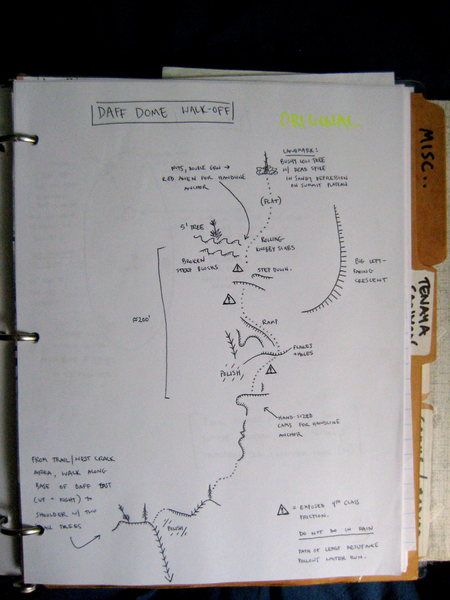 DAFF DOME WALK-OFF
ORIGINAL
LANDMARK:
BUSHY LOW TREE
W/ DEAD SPIKE
IN SANDY DEPRESSION
ON SUMMIT PLATEAU
NUTS, DOUBLE GRN →
RED ALIEN FOR HANDLINE
ANCHOR
(FLAT)
5' TREE
ROLLING
KNOBBY SLABS
BROKEN
STEEP BLOCKS
STEP DOWN.
BIG LEFT-
FACING
CRESCENT
≈200'
RAMP
FLAKES
+ HOLES
POLISH
HAND-SIZED
CAMS FOR HANDLINE
ANCHOR
FROM TRAIL/WEST CRACK
AREA, WALK ALONG
BASE OF DAFF
(UP + RIGHT) TO
SHOULDER W/ TWO
TREES
POLISH
= EXPOSED 4TH CLASS
FRICTION.
DO NOT DO IN RAIN
PATH OF LEAST RESISTANCE
FOLLOWS WATER RUN.
MISC..
TENAYA